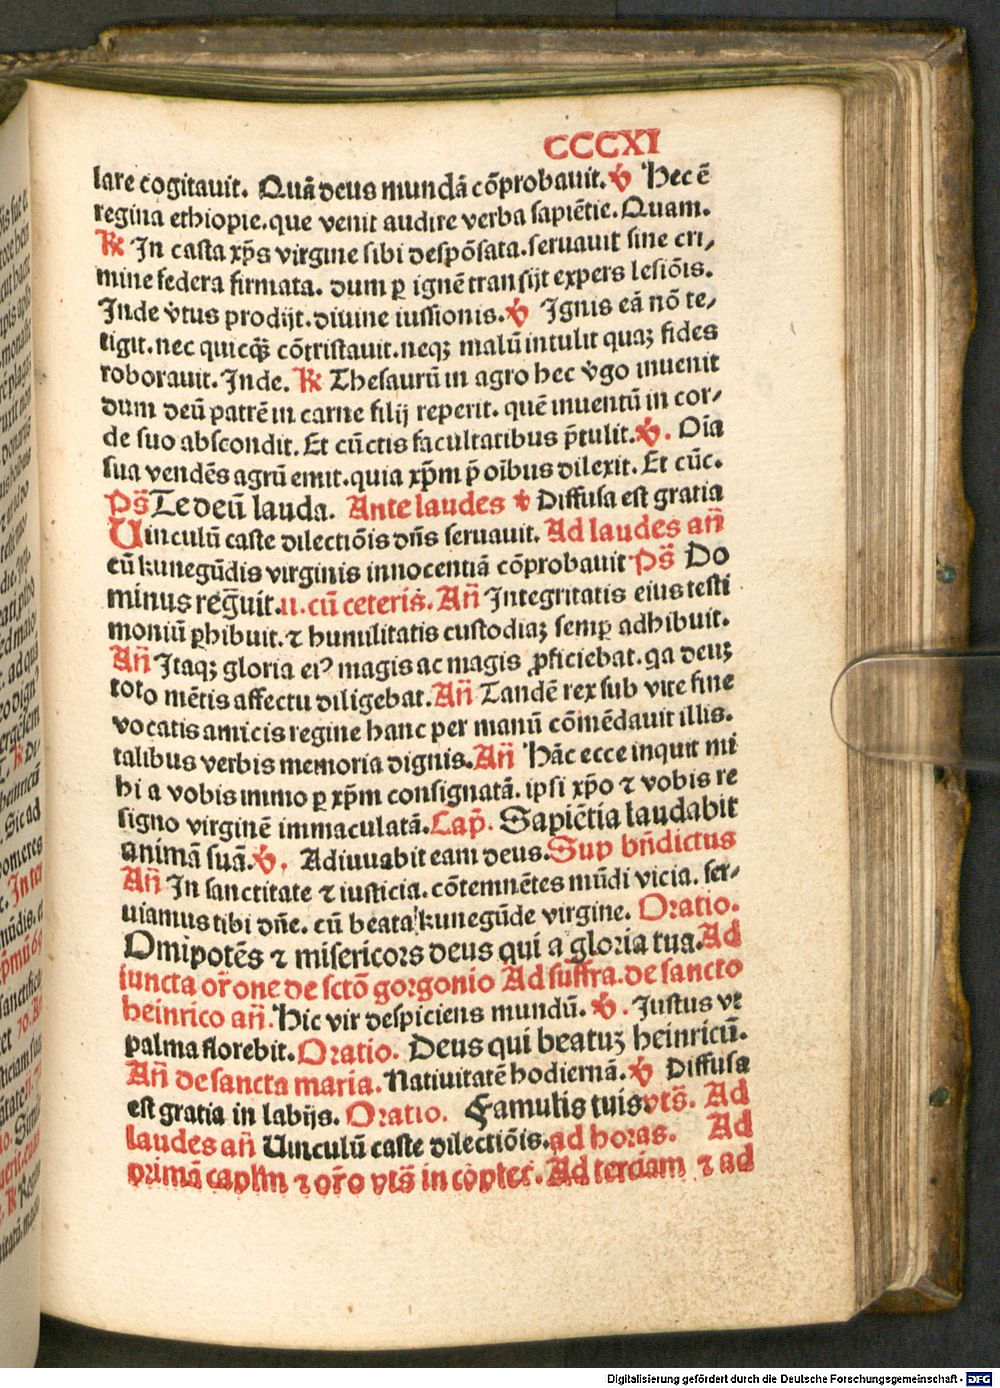 CCCXI
lare cogitauit. Quā deus mundā cōprobauit. ℣ Hec ē
regina ethiopie. que venit audire verba sapiētie. Quam.
℟ In casta xp̄s virgine sibi despōsata. seruauit sine cri⸗
mine federa firmata. dum ꝑ ignē transijt expers lesiōis.
Inde v̓tus prodijt. diuine iussionis. ℣ Ignis eā nō te⸗
tigit. nec quicq̄ȝ cōtristauit. neqȝ malū intulit quaȝ fides
roborauit. Inde. ℟ Thesaurū in agro hec v̓go inuenit
dum deū patrē in carne filij reperit. quē inuentū in cor⸗
de suo abscondit. Et cūctis facultatibus p̄tulit. ℣. Oīa
sua vendēs agrū emit. quia xp̄m p̄ oībus dilexit. Et cūc.
Ps̄ Te deū lauda. Ante laudes ℣ Diffusa est gratia
Uinculū caste dilectiōis dn̄s seruauit. Ad laudes an̄
cū kunegūdis virginis innocentiā cōprobauit Ps̄ Do
minus reḡuit. u. cū ceteris. An̄ Integritatis eius testi
moniū ꝑhibuit. ⁊ humilitatis custodiaȝ semꝑ adhibuit.
An̄ Itaqȝ gloria ei⁹ magis ac magis ꝓficiebat. qa deuȝ
toto mētis affectu diligebat. An̄ Tandē rex sub vite fine
vocatis amicis regine hanc per manū cōmēdauit illis.
talibus verbis memoria dignis. An̄ Hāc ecce inquit mi
hi a vobis immo ꝑ xp̄m consignatā. ipsi xp̄o ⁊ vobis re
signo virginē immaculatā. Cap̄. Sapiētia laudabit
animā suā. ℣. Adiuuabit eam deus. Sup bn̄dictus
An̄ In sanctitate ⁊ iusticia. cōtemnētes mūdi vicia. ser⸗
uiamus tibi dn̄e. cū beata kunegūde virgine. Oratio.
Omipotēs ⁊ misericors deus qui a gloria tua. Ad
iuncta or̄one de sctō gorgonio Ad suffra. de sancto
heinrico an̄. Hic vir despiciens mundū. ℣. Justus vt
palma florebit. Oratio. Deus qui beatuȝ heinricū.
An̄ de sancta maria. Natiuitatē hodiernā. ℣ Diffusa
est gratia in labijs. Oratio. Famulis tuis. vts̄. Ad
laudes an̄ Uinculū caste dilectiōis. ad horas. Ad
primā caplm̄ ⁊ or̄o vts̄ in cōplet̄. Ad terciam ⁊ ad
Digitalisierung gefördert durch die Deutsche Forschungsgemeinschaft - DFG